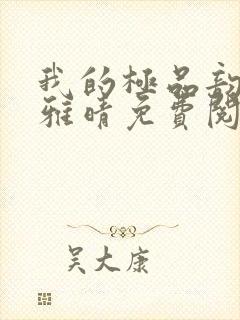 我的極品
雅晴免費閱
吴大康